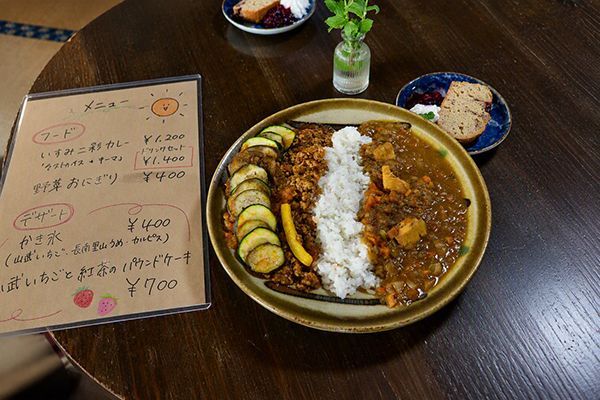 メニュー
フード
いすみ二彩カレー ¥1.200
ドリンクセット
¥1.400
野菜おにぎり ¥400
デザート
かき氷 ¥400
(山武いちご、長南里山うめ、カルピス)
武いちごと紅茶のパウンドケーキ
¥700